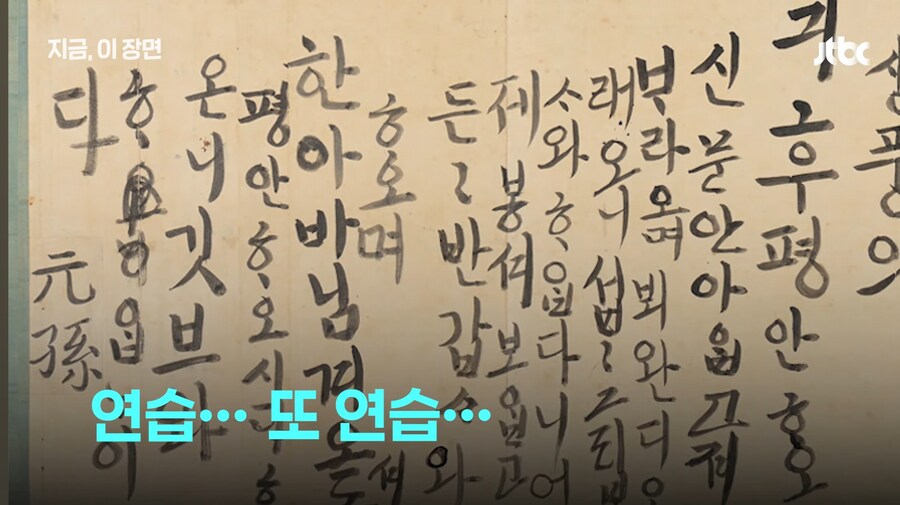 지금, 이 장면
jtbc
상풍의
긔후평안ᄒᆞ오
신문안아ᄋᆞᆸ고져
ᄇᆞ라오며뵈완디오
래오니섭〻그립
ᄉᆞ와ᄒᆞᄋᆞᆸ다니어
제봉셔보ᄋᆞᆸ고
든〻반갑ᄉᆞ와
ᄒᆞ오며
한아바님겨오셔
평안ᄒᆞ오시다ᄒᆞ
온니깃브와
ᄒᆞ
이
다
元孫
연습… 또 연습…